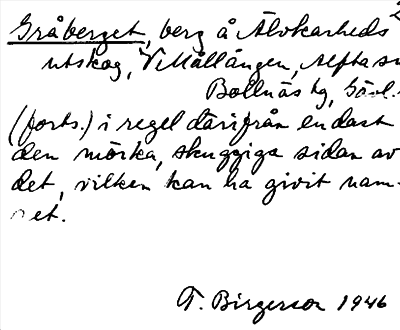 Gråberget, berg å Älvkarheds 2
utskog, V. Mållången, Alfta sn
Bollnäs tg, Gävl.
(forts.) i regel därifrån endast
den mörka, skuggiga sidan av
det, vilken kan ha givit nam-
net.
T. Birgerson 1946